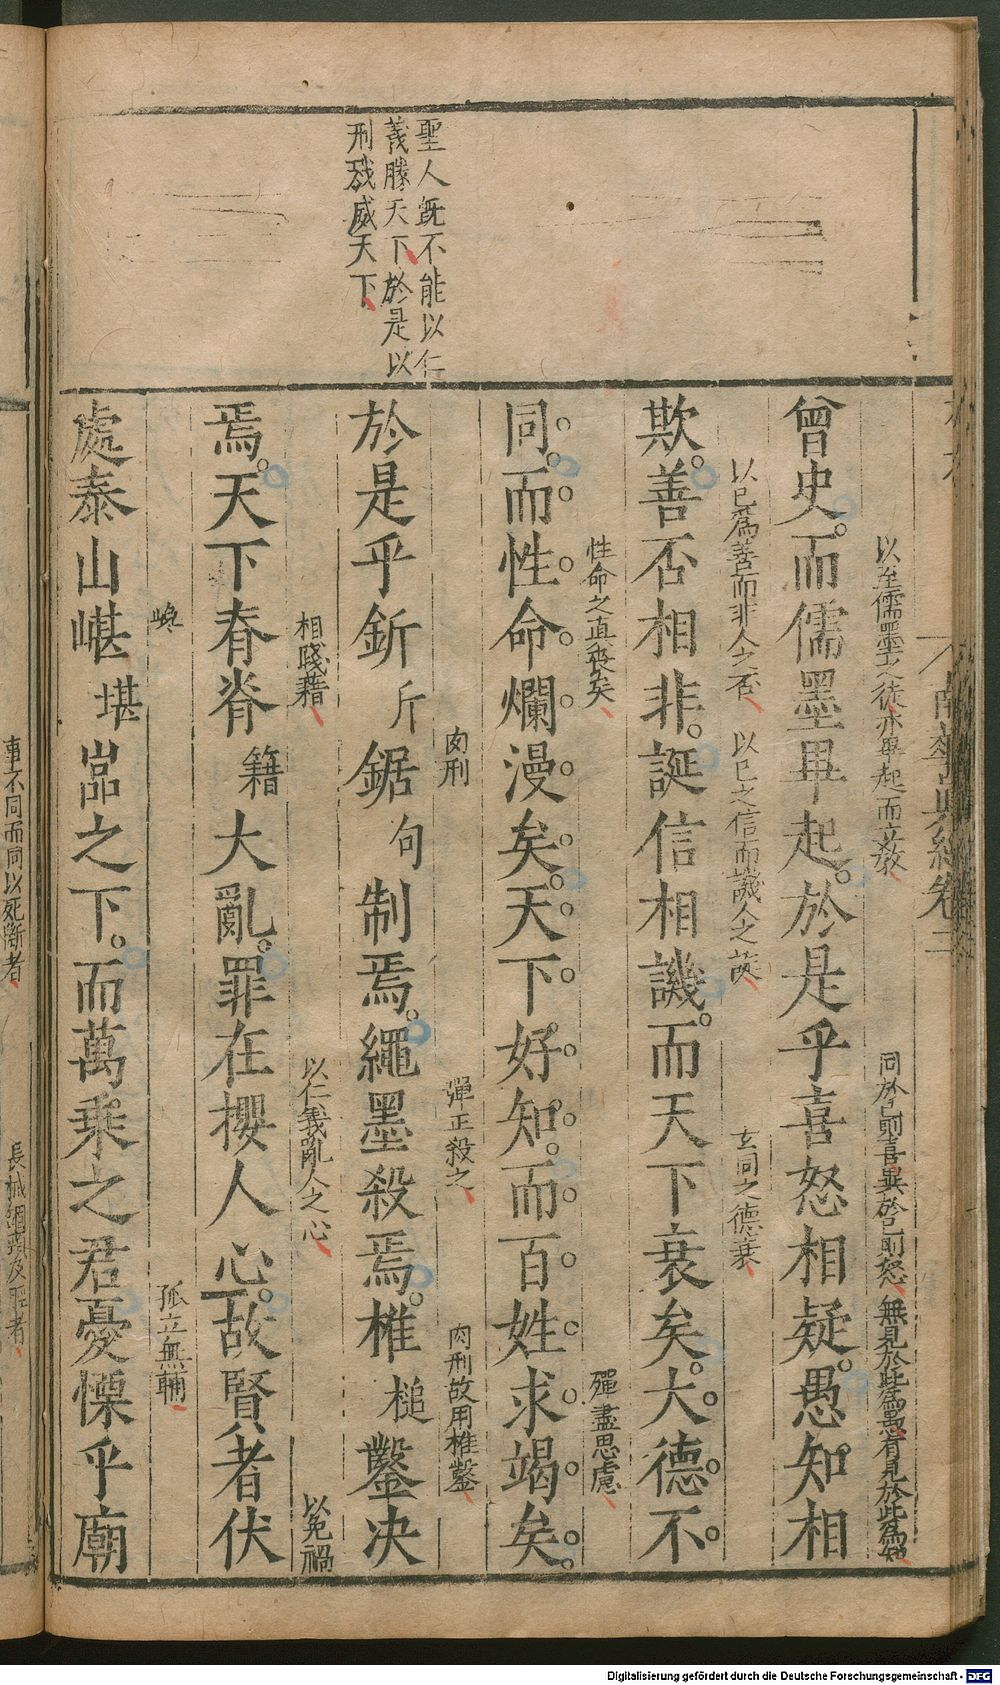 聖人既不能以仁
義勝天下於是以
刑戮威天下
南華真經卷三
以至儒墨之徒亦畢起而立教
同於己則喜異於己則怒
無見於此為愚有見於此為知
曾史而儒墨畢起於是乎喜怒相疑愚知相
以己為善而非人之否
以己之信而譏人之誕
玄同之德衰
欺善否相非誕信相譏而天下衰矣大德不
性命之直喪矣
殫盡思慮
同而性命爛漫矣天下好知而百姓求竭矣
肉刑
彈正殺之
肉刑故用椎鑿
於是乎釿斤鋸句制焉繩墨殺焉椎槌鑿决
相踐藉
以仁義亂人之心
以免禍
焉天下脊脊籍大亂罪在攖人心故賢者伏
孤立無輔
處泰山嵁堪嵒之下而萬乘之君憂慄乎廟
事不同而同以死斷者
Digitalisierung gefördert durch die Deutsche Forschungsgemeinschaft - DFG